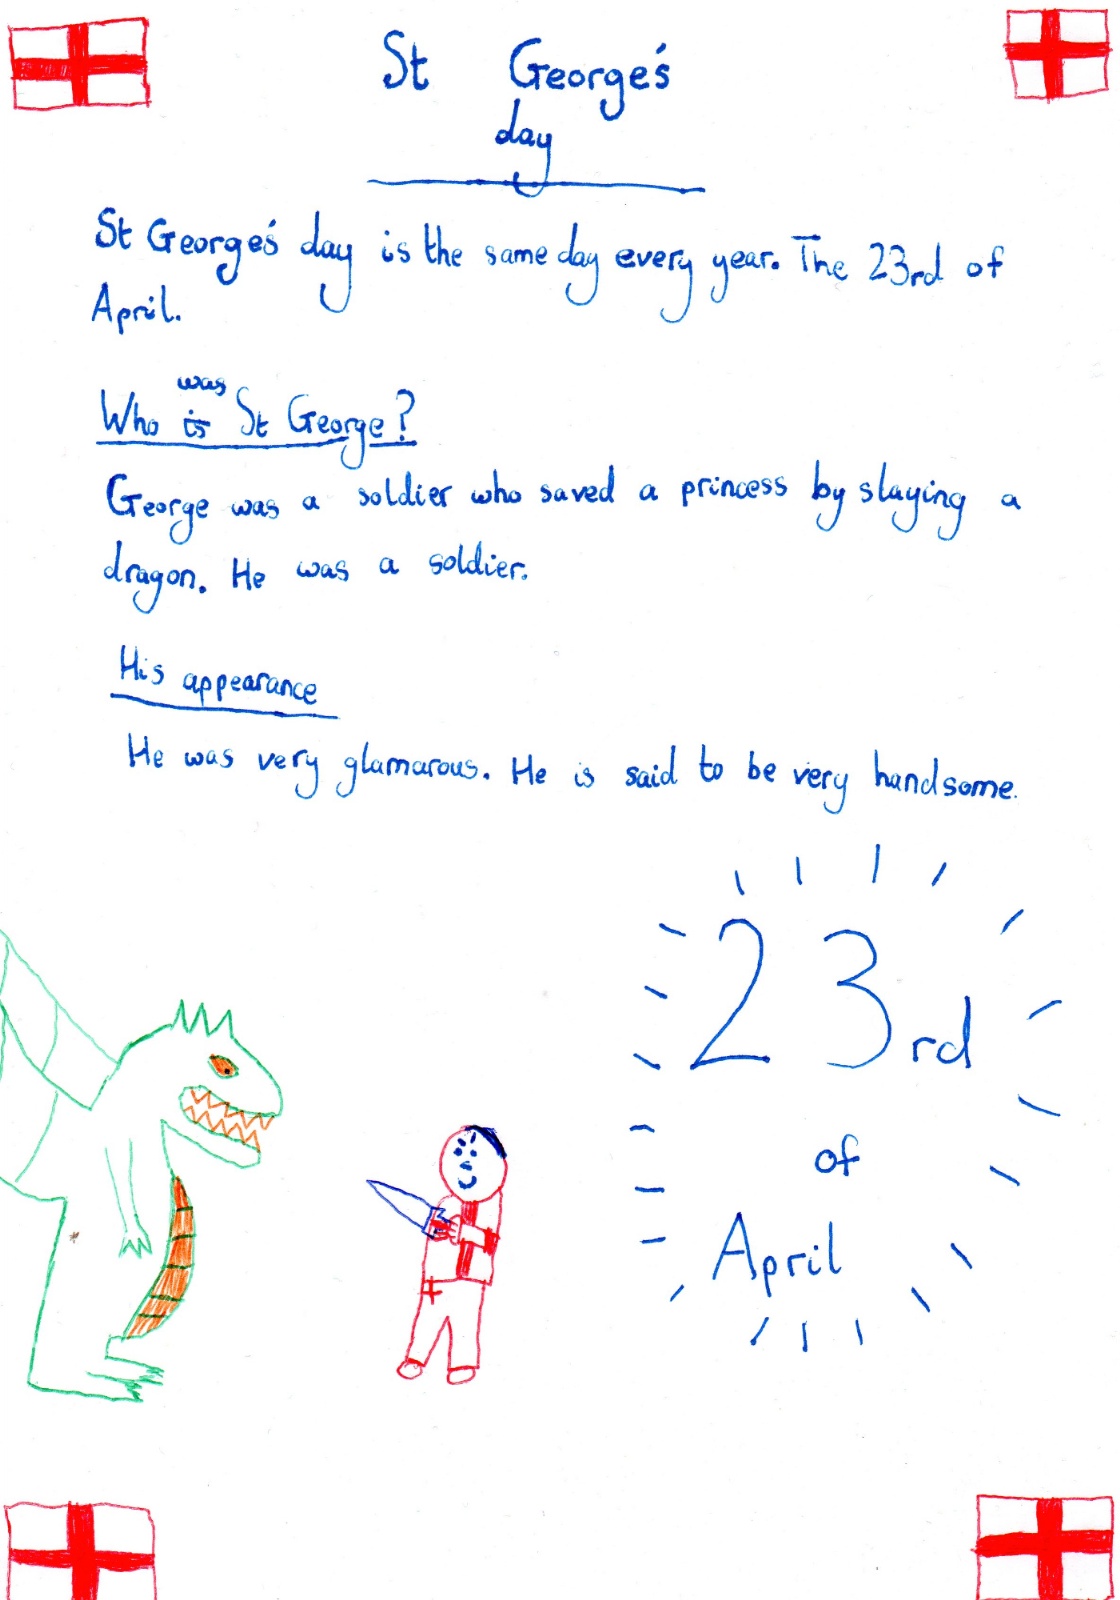 St George's
day
St George's day is the same day every year. The 23rd of
April.
was
Who is St George?
George was a soldier who saved a princess by slaying a
dragon. He was a soldier.
His appearance
He was very glamarous. He is said to be very handsome.
23rd
of
April